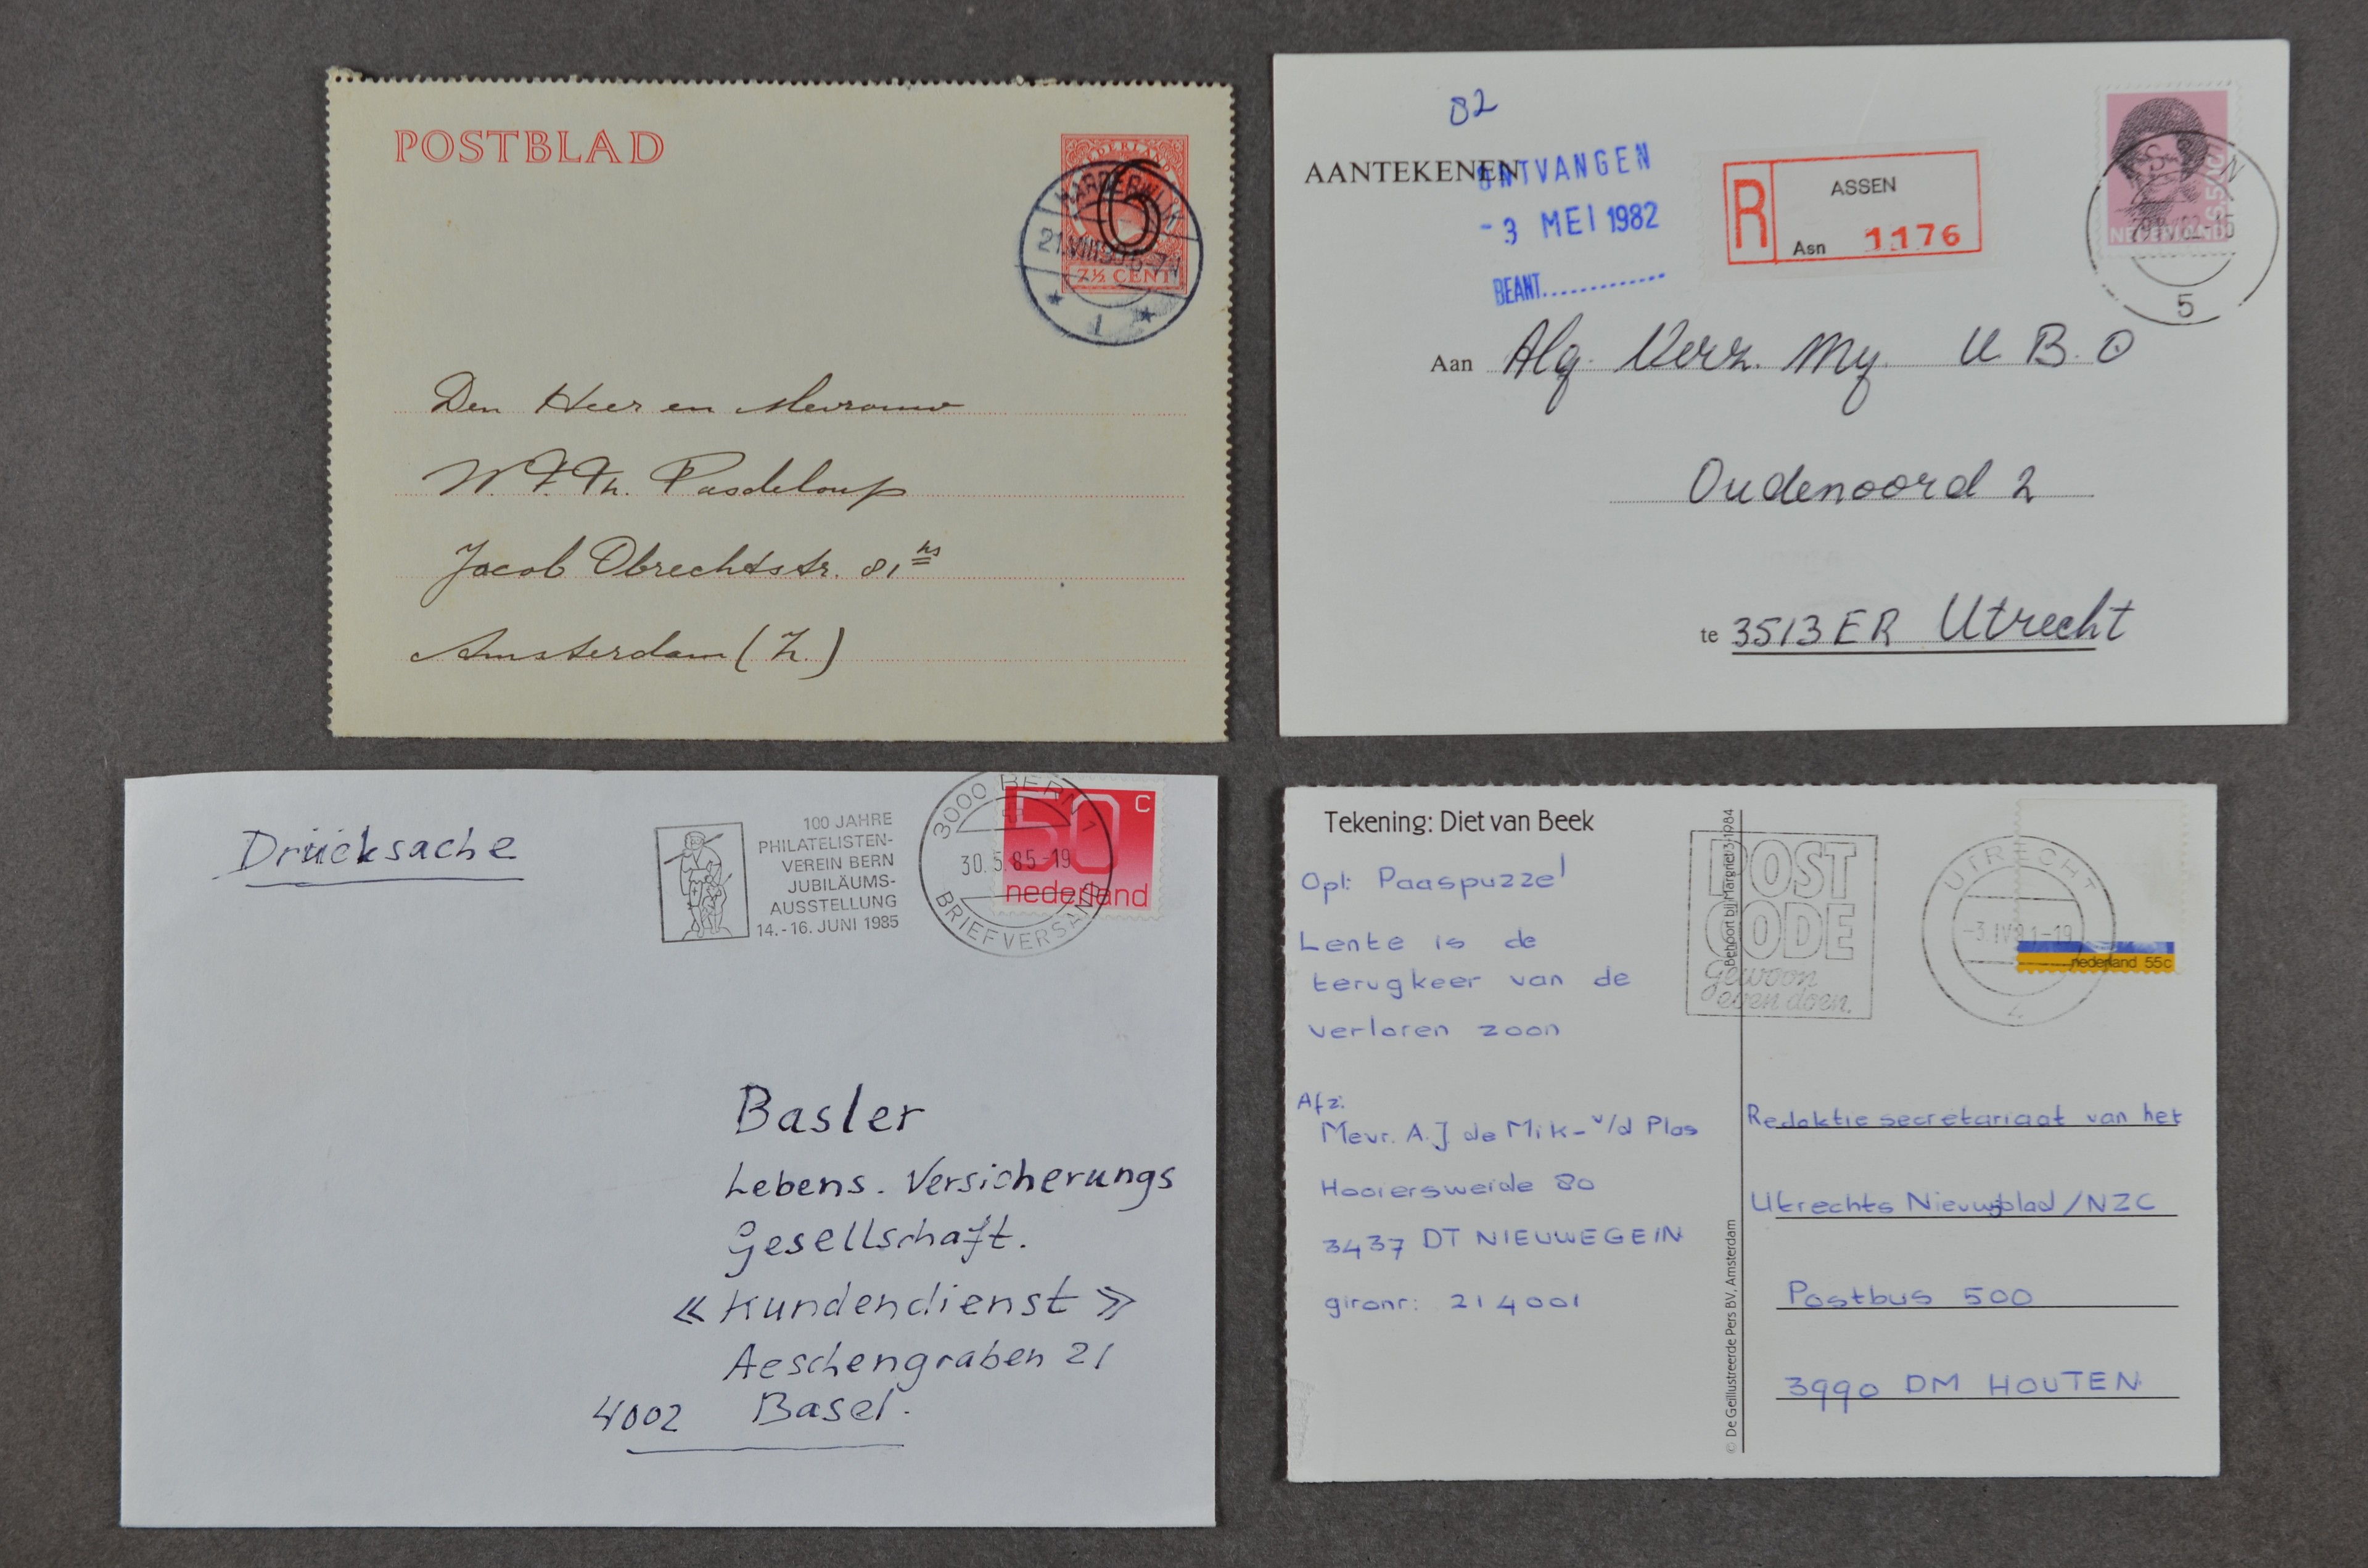 POSTBLAD
NEDERLAND
6
7½ CENT
HARDERWIJK
1
Den Heer en Mevrouw
W. F. Th. Pasdeloup
Jacob Obrechtstr. 81 hs
Amsterdam (Z.)
82
AANTEKENEN
ONTVANGEN
-3 MEI 1982
BEANT.............
R
ASSEN
Asn 1176
NEDERLAND
5
Aan Alg. Verz. My. U.B.O
Oudenoord 2
te 3513 ER Utrecht
Drücksache
100 JAHRE
PHILATELISTEN-
VEREIN BERN
JUBILÄUMS-
AUSSTELLUNG
14.-16. JUNI 1985
3000 BERN 1
30.5.85-19
BRIEFVERSAND
50 c
nederland
Basler
Lebens. Versicherungs
Gesellschaft.
« Kundendienst »
Aeschengraben 21
4002 Basel.
Tekening: Diet van Beek
Opl: Paaspuzzel
Lente is de
terugkeer van de
verloren zoon
Afz:
Mevr. A.J de Mik-v/d Plas
Hooiersweide 80
3437 DT NIEUWEGEIN
gironr: 214001
Behoort bij Margriet 3-1984
© De Geïllustreerde Pers BV, Amsterdam
POST
CODE
gewoon
even doen.
UTRECHT
nederland 55c
Redaktie secretariaat van het
Utrechts Nieuwsblad/NZC
Postbus 500
3990 DM HOUTEN